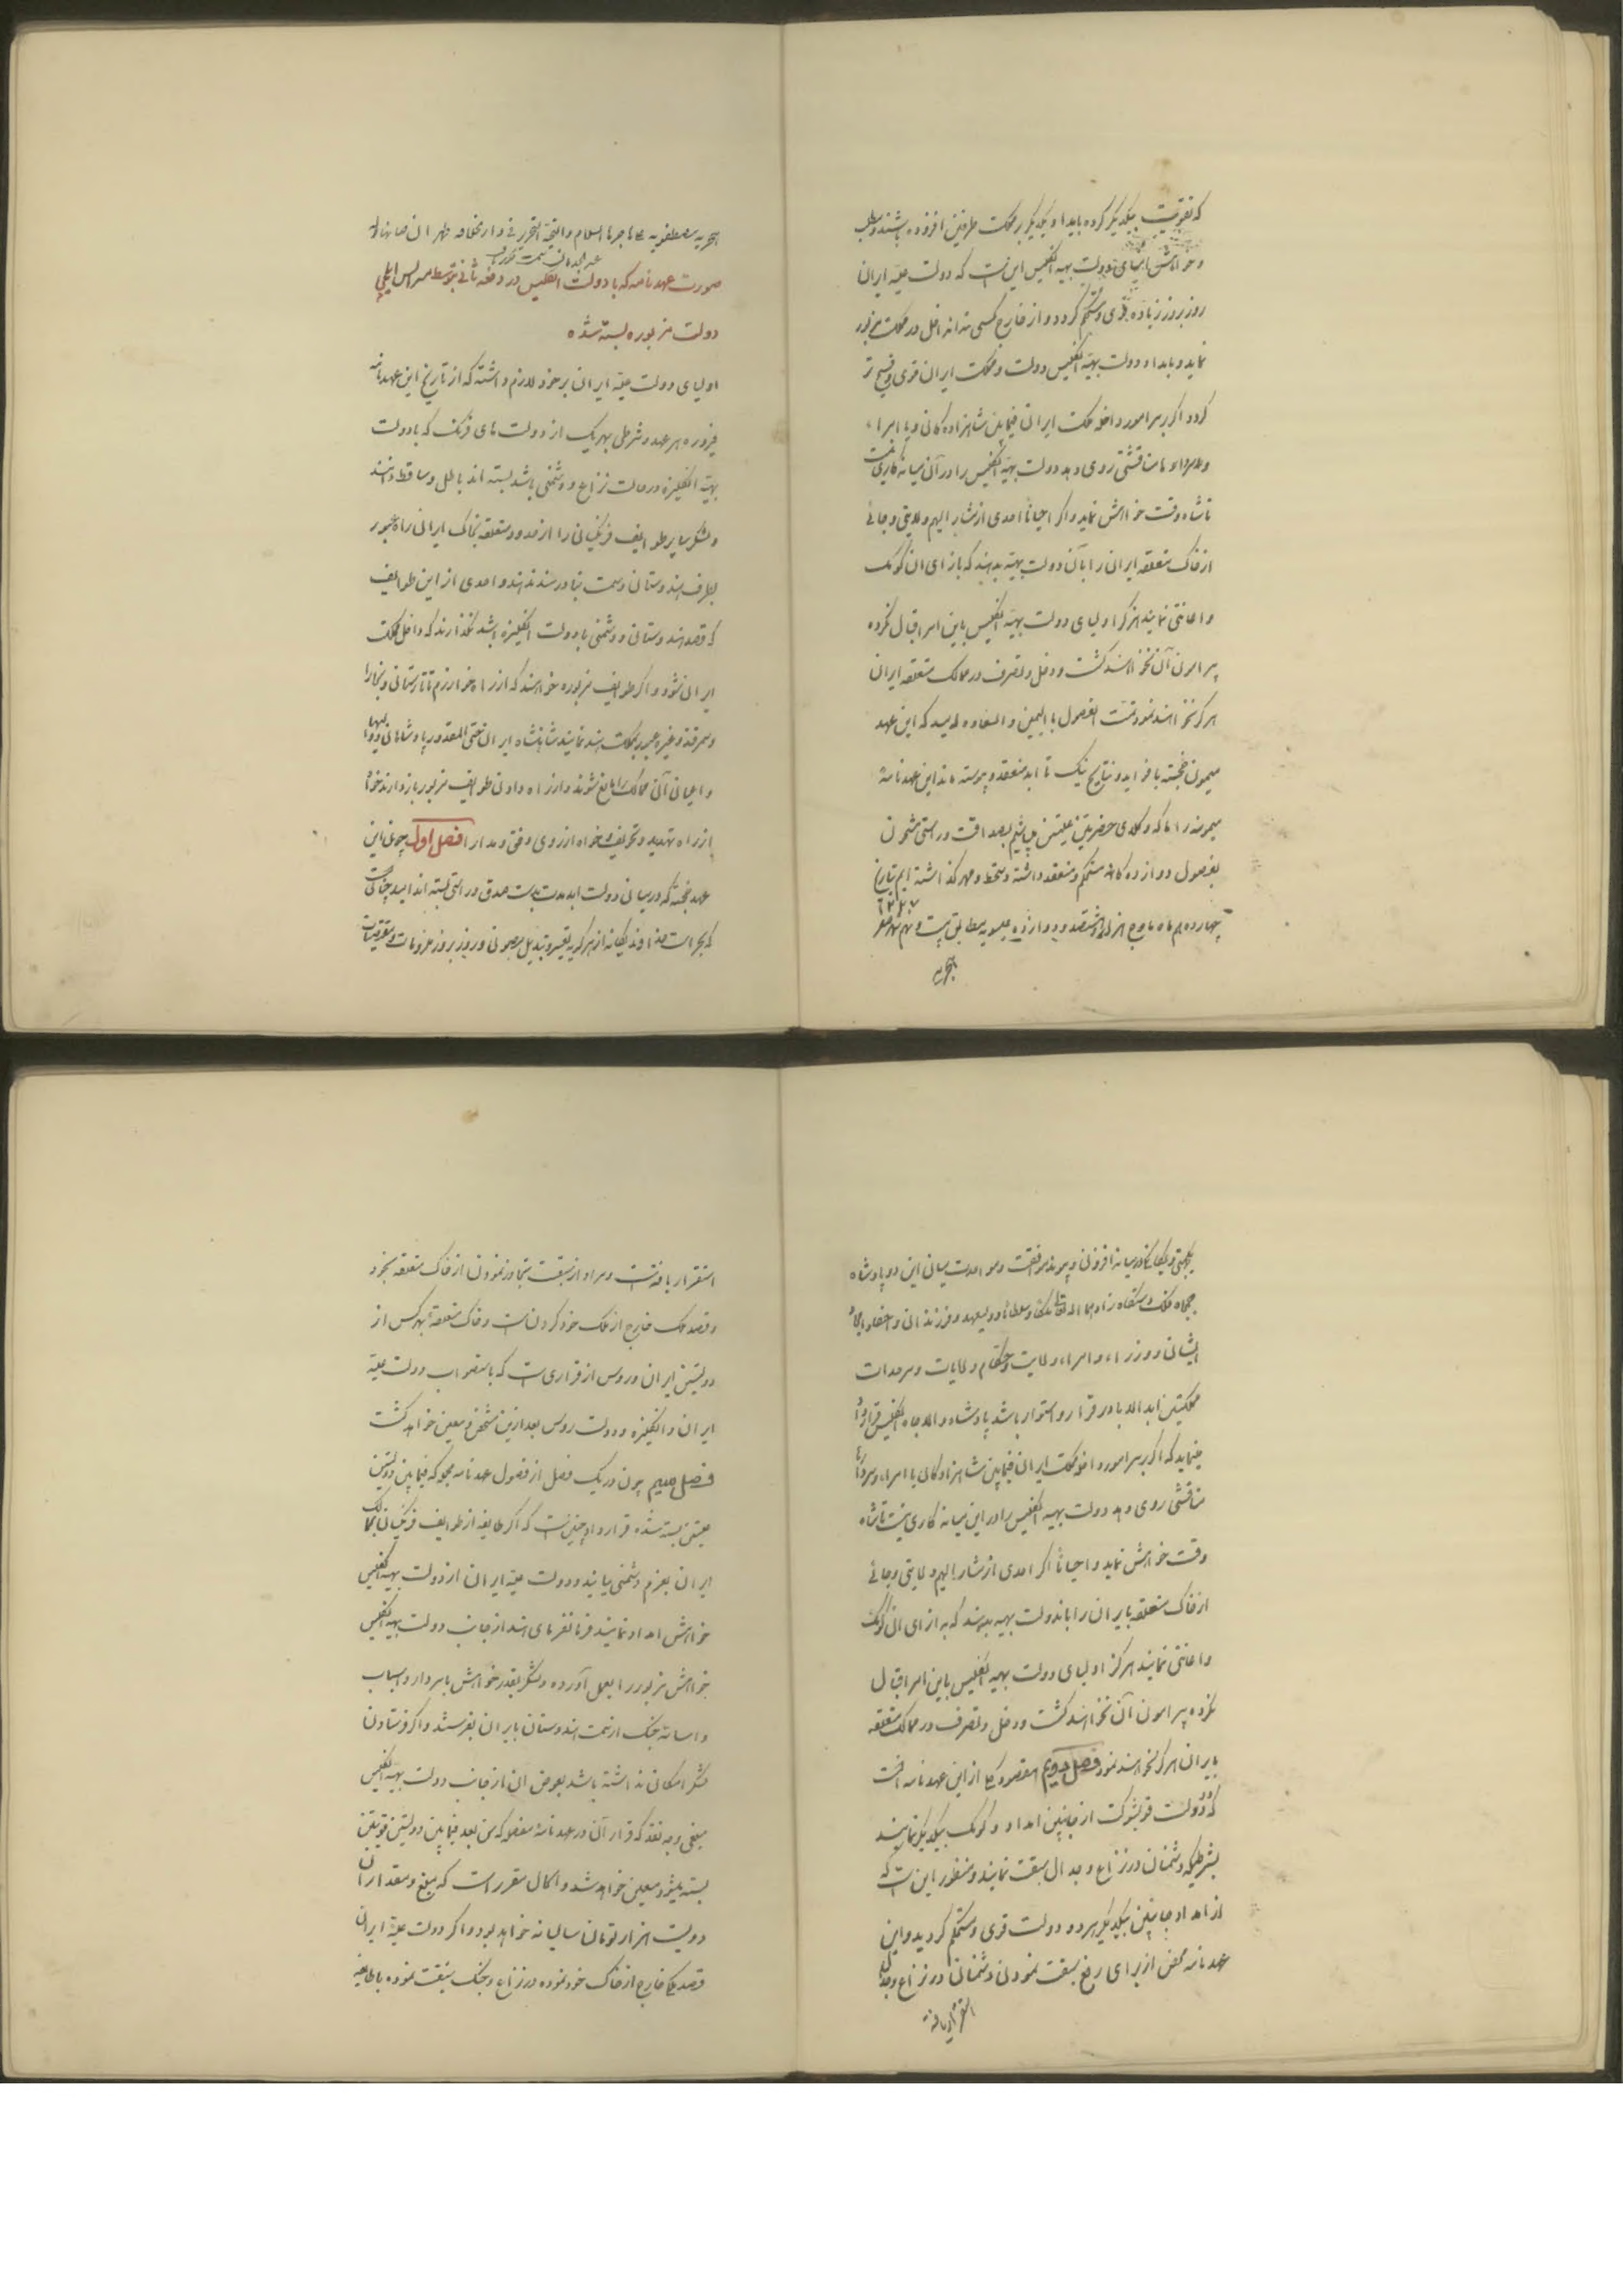 که تقویت بیکدیگر کرده بامداد یکدیگر بر مملکت طرفین افزوده باشند و مطلب
و خواهش اولیای دولت بهیه انگلیس این است که دولت علیه ایران
روز بروز زیاده قوی و مستحکم گردد و از خارج کسی نتواند دخل در مملکت مزبور
نماید و بامداد دولت بهیه انگلیس دولت و مملکت ایران قوی و فسیح تر
گردد و اگر بر سر امور داخله مملکت ایران فیمابین شاهزادگان و یا امراء
و سردارها مناقشتی روی دهد دولت بهیه انگلیس را در آن میانه کاری نیست
تا شاه وقت خواهش نماید و اگر احیاناً احدی از مشار الیهم ولایتی و جائی
از خاک متعلقه ایران را بآن دولت بهیه بدهند که بازای آن کومک
و اعانتی نمایند هرگز اولیای دولت بهیه انگلیس باین امر اقبال نکرده
پیرامون آن نخواهند گشت و دخل و تصرف در ممالک متعلقه ایران
هرگز نخواهند نمود تمت الفصول بالیمن و السعاده امید که این عهد
میمون خجسته با فواید و نتایج نیک تا ابد منعقد و پیوسته ماند این عهدنامهٔ
میمونه را ما که وکلای حضرتین علیتین می باشیم بصداقت و راستی مشحون
بفصول دوازده گانه مستحکم و منعقد داشته دستخط و مهر گذاشته ایم بتاریخ
چهاردهم ماه مارچ هزار و هشتصد و دوازده عیسویه مطابق بیست و نهم شهر صفر
۱۲۲۷
هجریه
هجریه مصطفویه علی هاجرها السلام و التحیة التحریر فی دارالخلافه طهران صانها الله
صورت عهدنامه که با دولت انگلیس در دفعه ثانی بتوسط مسر الس ایلچی
دولت مزبوره بسته شده
اولیای دولت علیه ایران بر خود لازم داشته که از تاریخ این عهدنامه
فیروزه هر عهد و شرطی بهر یک از دولت های فرنگ که با دولت
بهیه انگلیزه در حالت نزاع و دشمنی باشد بسته اند باطل و ساقط دانند
و لشکر سایر طوایف فرنگیان را از حدود متعلقه بخاک ایران راه عبور
بطرف هندوستان و سمت بنادر هند ندهند و احدی از این طوایف
که قصد هندوستان و دشمنی با دولت انگلیزه باشد نگذارند که داخل مملکت
ایران شود و اگر طوایف مزبوره خواهند که از راه خوارزم تاتارستان و بخارا
و سمرقند و غیره عبور بمملکت هند نمایند شاهنشاه ایران حتی المقدور پادشاهان و والیها
و اعیان آن ممالک را مانع شوند و از راه دادن طوایف مزبور بازدارند خواه
از راه تهدید و تخویف و خواه از روی رفق و مدارا فصل اول چون این
عهد خجسته که در میان دولت ابد مدت بدست صدق و راستی بسته اند امید چنانست
که بحراست خداوند یگانه از هر گونه تغییر و تبدیل مصون و روز بروز ملزومات و مقتضیات
یکجهتی و یگانگی در میانه افزون و پیوند موافقت و مواحدت میان این دو پادشاه
جمجاه فلک دستگاه زاد هما الله تعالی ملکاً و سلطاناً و ولیعهد و فرزندان و احفاد امجاد
ایشان و وزراء و امراء و ولایت و حکام ولایات و سرحدات
مملکتین ابد الاباد برقرار و استوار باشد پادشاه والاجاه انگلیس قرارداد
مینماید که اگر بر سر امور داخله مملکت ایران فیمابین شاهزادگان یا امراء و سردارها
مناقشتی روی دهد دولت بهیه انگلیس را در این میانه کاری نیست تا شاه
وقت خواهش نماید و احیاناً اگر احدی از مشار الیهم ولایتی و جائی
از خاک متعلقه بایران را باندولت بهیه بدهند که به ازای آن کومک
و اعانتی نمایند هرگز اولیای دولت بهیه انگلیس باین امر اقبال
نکرده پیرامون آن نخواهند گشت و دخل و تصرف در ممالک متعلقه
بایران هرگز نخواهند نمود فصل دویم مقصود کلی از این عهدنامه آنست
که دو دولت قویشوکت از جانبین امداد و کومک بیکدیگر نمایند
بشرطیکه دشمنان در نزاع و جدال سبقت نمایند و منظور این است که
از امداد جانبین بیکدیگر هر دو دولت قوی و مستحکم گردید و این
عهدنامه محض از برای رفع سبقت نمودن دشمنان در نزاع و جدال
استقرار یافته
استقرار یافته است و مراد از سبقت تجاوز نمودن از خاک متعلقه بخود
و قصد ملک خارج از ملک خود کردن است و خاک متعلقهٔ بهر کس از
دولتین ایران و روس از قراری است که باستصواب دولت علیه
ایران و انگلیزه و دولت روس بعد ازین مشخص و معین خواهد گشت
فصل سیم چون در یک فصل از فصول عهدنامه مجمله که فیمابین دولتین
علیتین بسته شده قرارداد چنین است که اگر طایفه از طوایف فرنگیان بممالک
ایران بعزم دشمنی بیایند و دولت علیه ایران از دولت بهیه انگلیس
خواهش امداد نمایند فرمانفرمای هند از جانب دولت بهیه انگلیس
خواهش مزبور را بعمل آورده و لشکر بقدر خواهش با سردار و اسباب
و اساسه جنگ از سمت هندوستان بایران بفرستند و اگر فرستادن
لشکر امکان نداشته باشد بعوض آن از جانب دولت بهیه انگلیس
مبلغی وجه نقد که قرار آن در عهدنامهٔ مفصله که من بعد فیمابین دولتین قویتین
بسته میشود معین خواهد شد و الحال مقرر است که مبلغ و مقدار آن
دویست هزار تومان سالیانه خواهد بود و اگر دولت علیه ایران
قصد ملکی خارج از خاک خود نموده در نزاع و جنگ سبقت نموده با طایفه